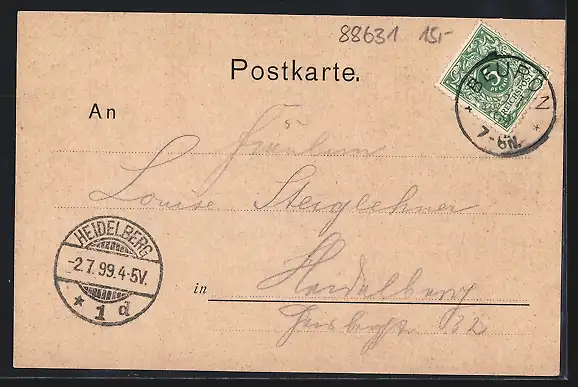 88631 15,-
Postkarte.
5
BEURON
7-8N.
An
Fräulein
Louise Steiglehner
HEIDELBERG
-2.7.99.4-5V.
* 1 d
in Heidelberg
82